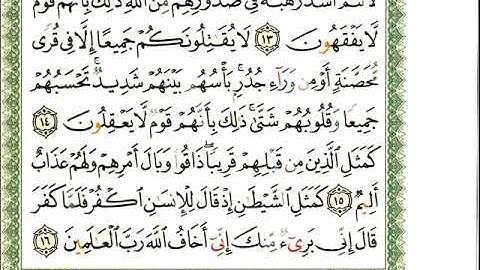 لَأَنتُمْ أَشَدُّ رَهْبَةً فِي صُدُورِهِم مِّنَ اللَّهِ ذَٰلِكَ بِأَنَّهُمْ قَوْمٌ
لَّا يَفْقَهُونَ ١٣ لَا يُقَاتِلُونَكُمْ جَمِيعًا إِلَّا فِي قُرًى
مُّحَصَّنَةٍ أَوْ مِن وَرَاءِ جُدُرٍ ۚ بَأْسُهُم بَيْنَهُمْ شَدِيدٌ ۚ تَحْسَبُهُمْ
جَمِيعًا وَقُلُوبُهُمْ شَتَّىٰ ۚ ذَٰلِكَ بِأَنَّهُمْ قَوْمٌ لَّا يَعْقِلُونَ ١٤
كَمَثَلِ الَّذِينَ مِن قَبْلِهِمْ قَرِيبًا ۖ ذَاقُوا وَبَالَ أَمْرِهِمْ وَلَهُمْ عَذَابٌ
أَلِيمٌ ١٥ كَمَثَلِ الشَّيْطَانِ إِذْ قَالَ لِلْإِنسَانِ اكْفُرْ فَلَمَّا كَفَرَ
قَالَ إِنِّي بَرِيءٌ مِّنكَ إِنِّي أَخَافُ اللَّهَ رَبَّ الْعَالَمِينَ ١٦